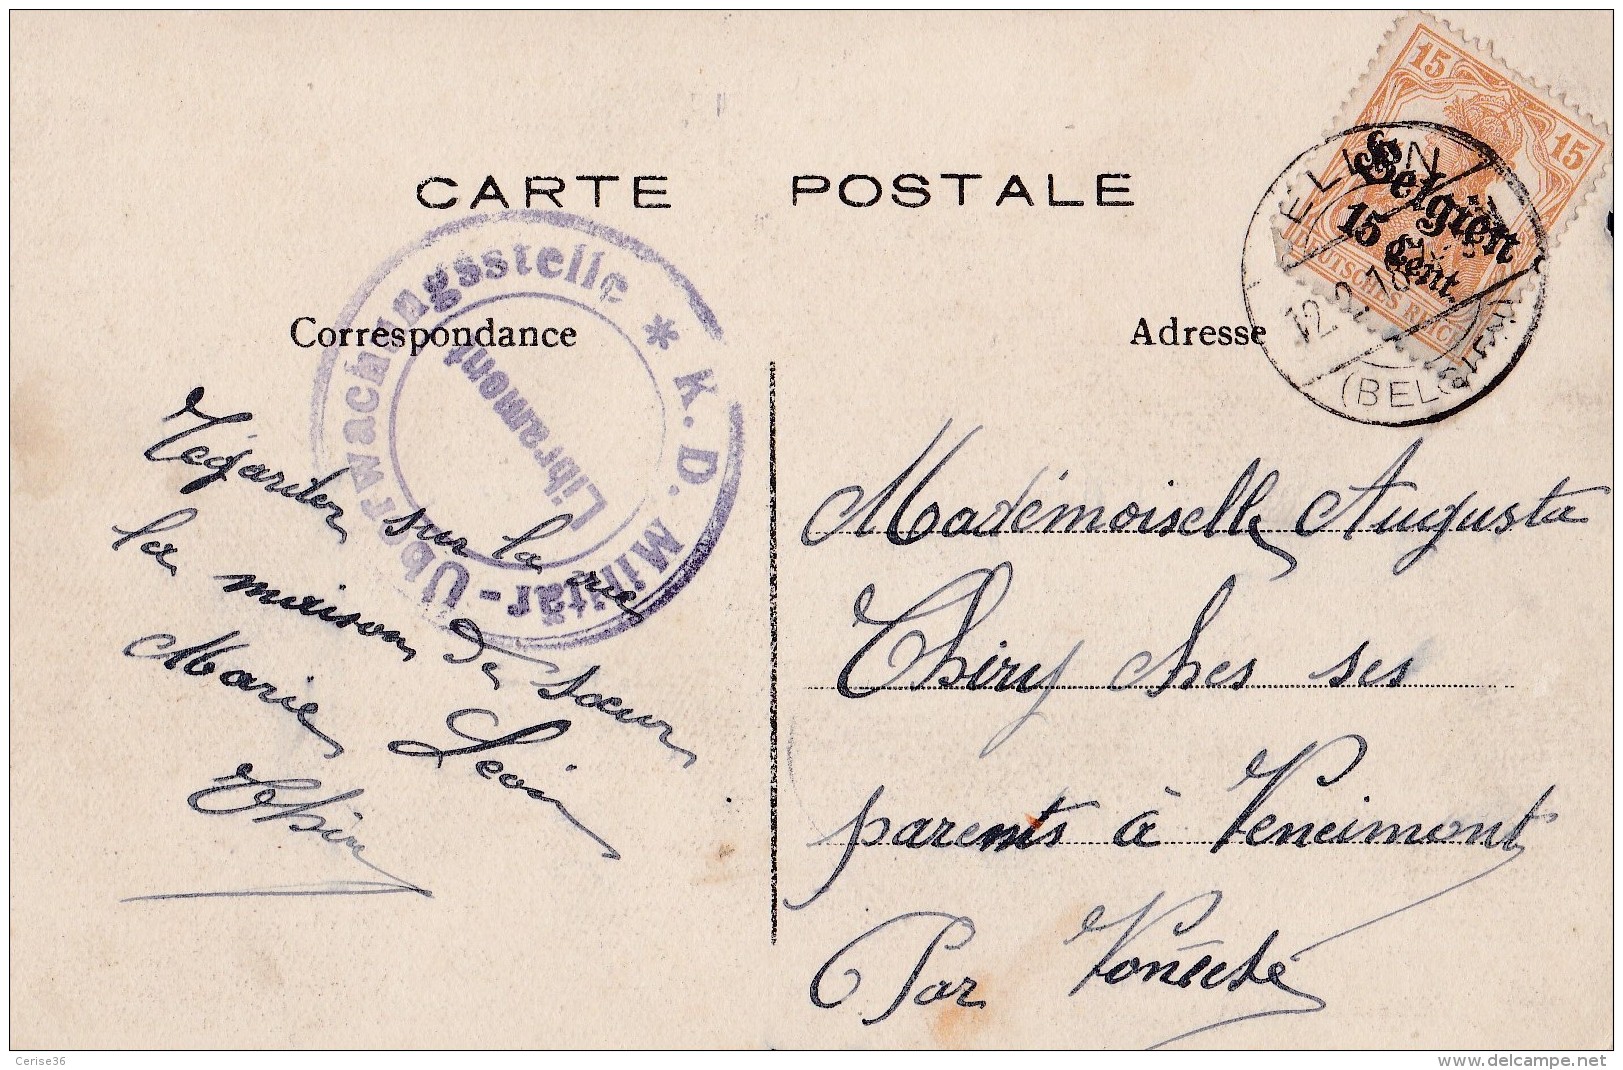 CARTE POSTALE
Correspondance
Adresse
K. D. Militär-Überwachungsstelle *
Libramont
15
15
Belgien
15 Cent.
DEUTSCHES REICH
TELLIN
12.2.18
(BELGIEN)
Régarder sur la rue
la maison du soeur
Marie Leon
Thiry
Madémoiselle Augusta
Thiry ches ses
parents à Vencimont
Par Vonêche
Cerise36
www.delcampe.net